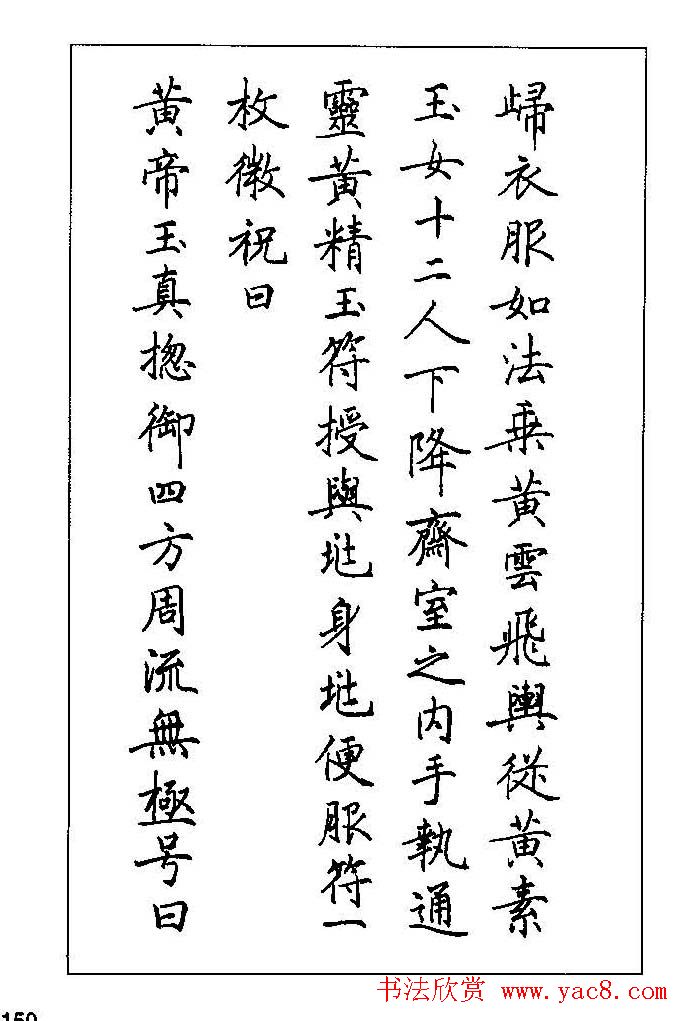 歸衣服如法乗黄雲飛輿從黄素
玉女十二人下降齋室之内手執通
靈黄精玉符授與兆身兆便服符一
枚微祝曰
黄帝玉真揔御四方周流無極号曰
书法欣赏 www.yac8.com
150